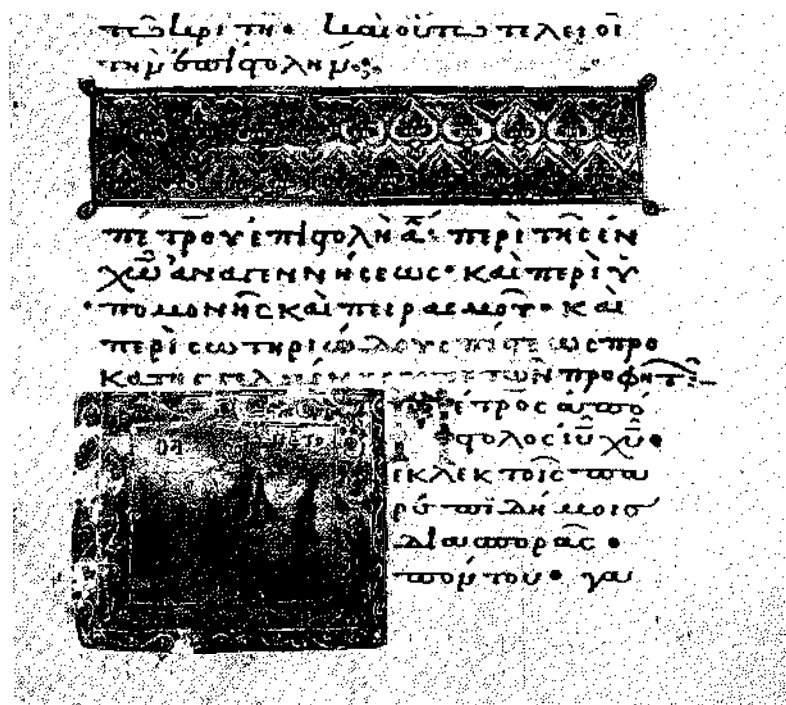 τῶ κριτῆ· καὶ οὕτω τελειοῖ
τὴν ἐπιστολήν
πέτρου ἐπιστολὴ α̅· περὶ τῆς ἐν
χ̅ω̅ ἀναγεννήσεως· καὶ περὶ ὑ
πομονῆς καὶ πειρασμοῦ· καὶ
περὶ σωτηριώδους πίστεως προ
τῶν προφητῶν
πέτρος ἀπό
στολος ι̅υ̅ χ̅υ̅·
ἐκλεκτοῖς πα
ρεπιδήμοις
διασπορᾶς·
πόντου· γα